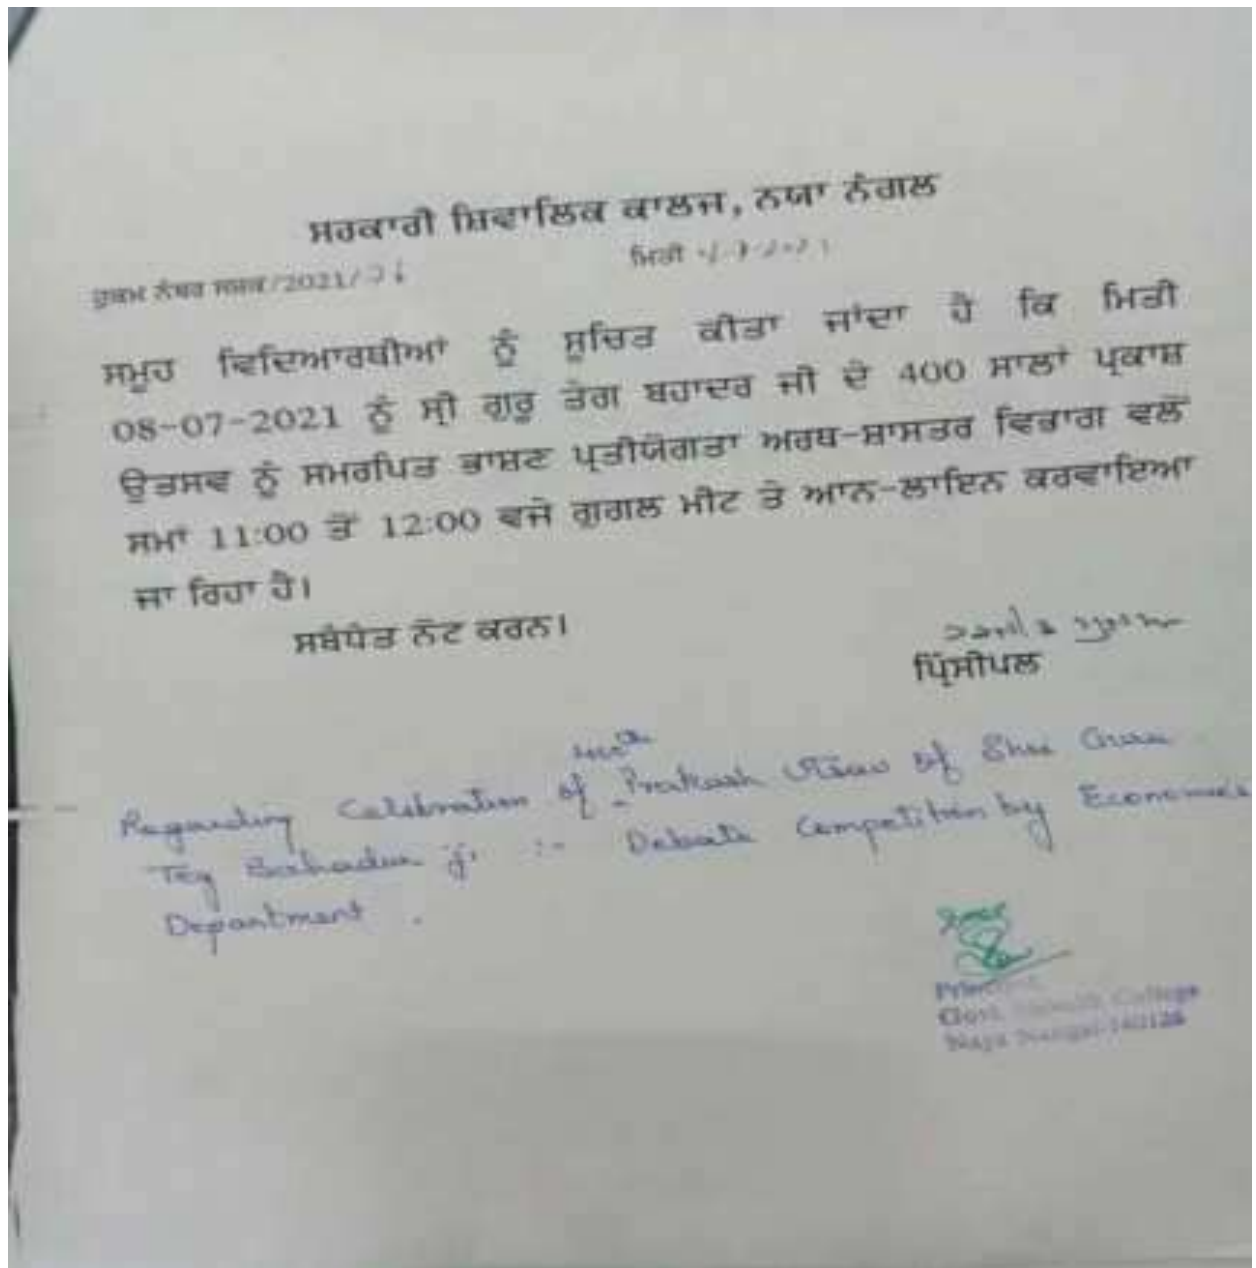 ਸਰਕਾਰੀ ਸ਼ਿਵਾਲਿਕ ਕਾਲਜ, ਨਯਾ ਨੰਗਲ
ਹੁਕਮ ਨੰਬਰ ਸਸਕ/2021/
ਮਿਤੀ
ਸਮੂਹ ਵਿਦਿਆਰਥੀਆਂ ਨੂੰ ਸੂਚਿਤ ਕੀਤਾ ਜਾਂਦਾ ਹੈ ਕਿ ਮਿਤੀ
08-07-2021 ਨੂੰ ਸ੍ਰੀ ਗੁਰੂ ਤੇਗ ਬਹਾਦਰ ਜੀ ਦੇ 400 ਸਾਲਾਂ ਪ੍ਰਕਾਸ਼
ਉਤਸਵ ਨੂੰ ਸਮਰਪਿਤ ਭਾਸ਼ਣ ਪ੍ਰਤੀਯੋਗਤਾ ਅਰਥ-ਸ਼ਾਸਤਰ ਵਿਭਾਗ ਵਲੋਂ
ਸਮਾਂ 11:00 ਤੋਂ 12:00 ਵਜੇ ਗੂਗਲ ਮੀਟ ਤੇ ਆਨ-ਲਾਇਨ ਕਰਵਾਇਆ
ਜਾ ਰਿਹਾ ਹੈ।
ਸਬੰਧਤ ਨੋਟ ਕਰਨ।
ਪ੍ਰਿੰਸੀਪਲ
400th
Regarding Celebration of Prakash Utsav of Shri Guru
Teg Bahadur ji :- Debate Competition by Economics
Department .
Principal
Govt. Shivalik College
Naya Nangal-140126